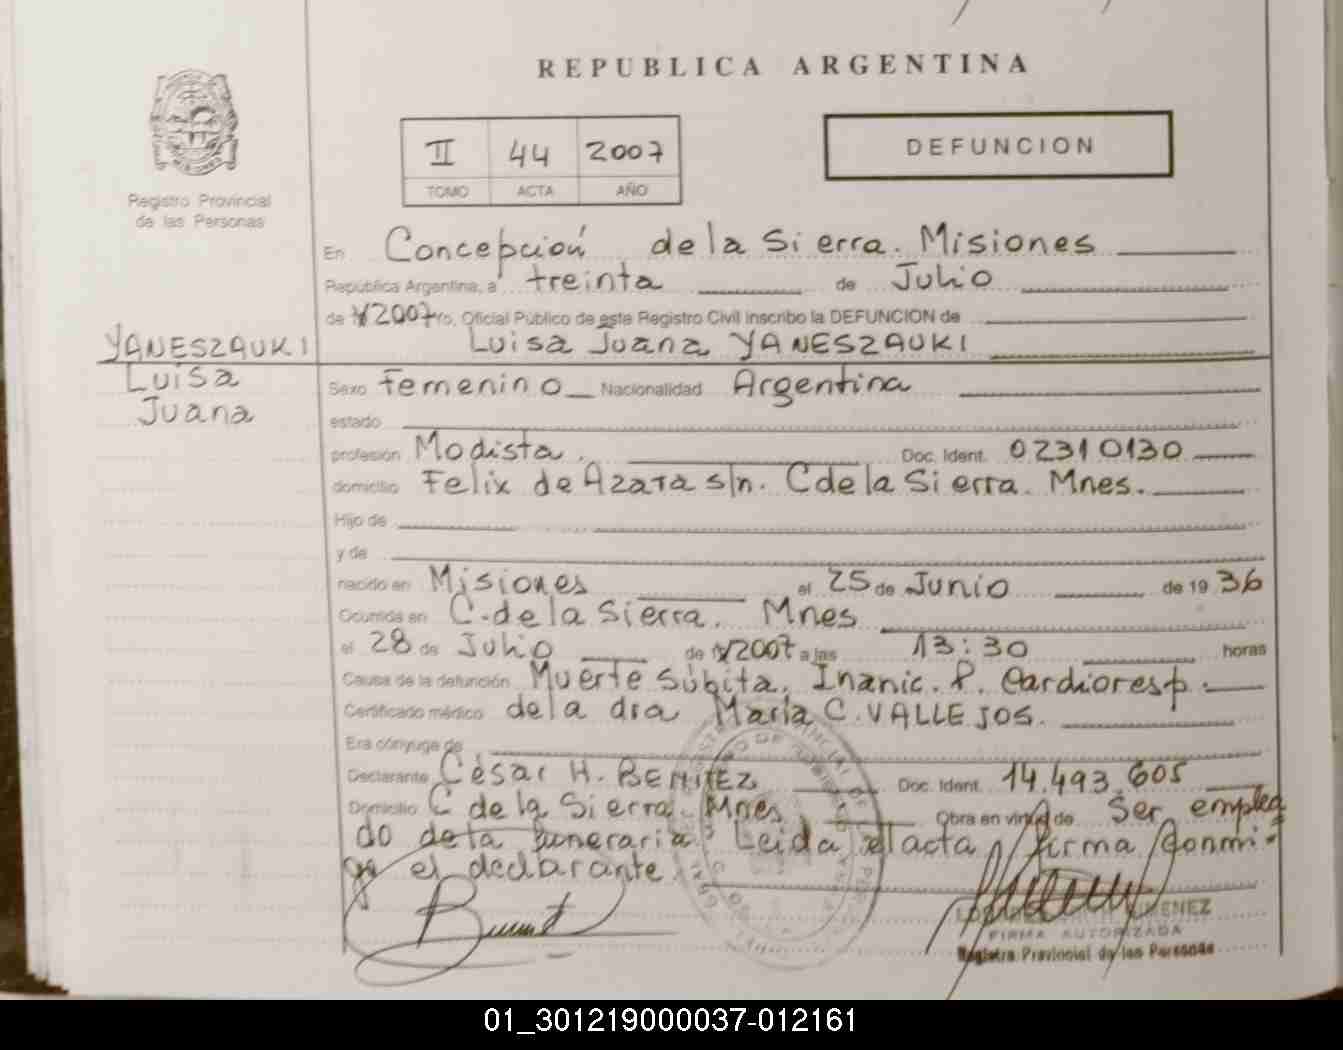 REPUBLICA ARGENTINA
II 44 2007
TOMO ACTA AÑO
DEFUNCION
Registro Provincial
de las Personas
En Concepción de la Sierra. Misiones
Republica Argentina, a treinta de Julio
de 2007 ro, Oficial Público de este Registro Civil inscribo la DEFUNCION de
YANESZAUKI
Luisa
Juana
Luisa Juana YANESZAUKI
Sexo Femenino Nacionalidad Argentina
estado
profesión Modista. Doc. Ident. 02310130
domicilio Felix de Azara s/n. C de la Sierra. Mnes.
Hijo de
y de
nacido en Misiones el 25 de Junio de 19 36
Ocurrida en C. de la Sierra. Mnes
el 28 de Julio de 2007 a las 13:30 horas
Causa de la defunción Muerte Súbita, Inanic. P. Cardioresp.
Certificado médico de la dra María C. VALLEJOS.
Era cónyuge de
Declarante César H. BENITEZ Doc. Ident. 14.493.605
Domicilio C de la Sierra. Mnes Obra en virtud de Ser emplea
do de la funeraria. Leida el acta, firma conmi-
go el declarante.
FIRMA AUTORIZADA
Registro Provincial de las Personas
01_301219000037-012161